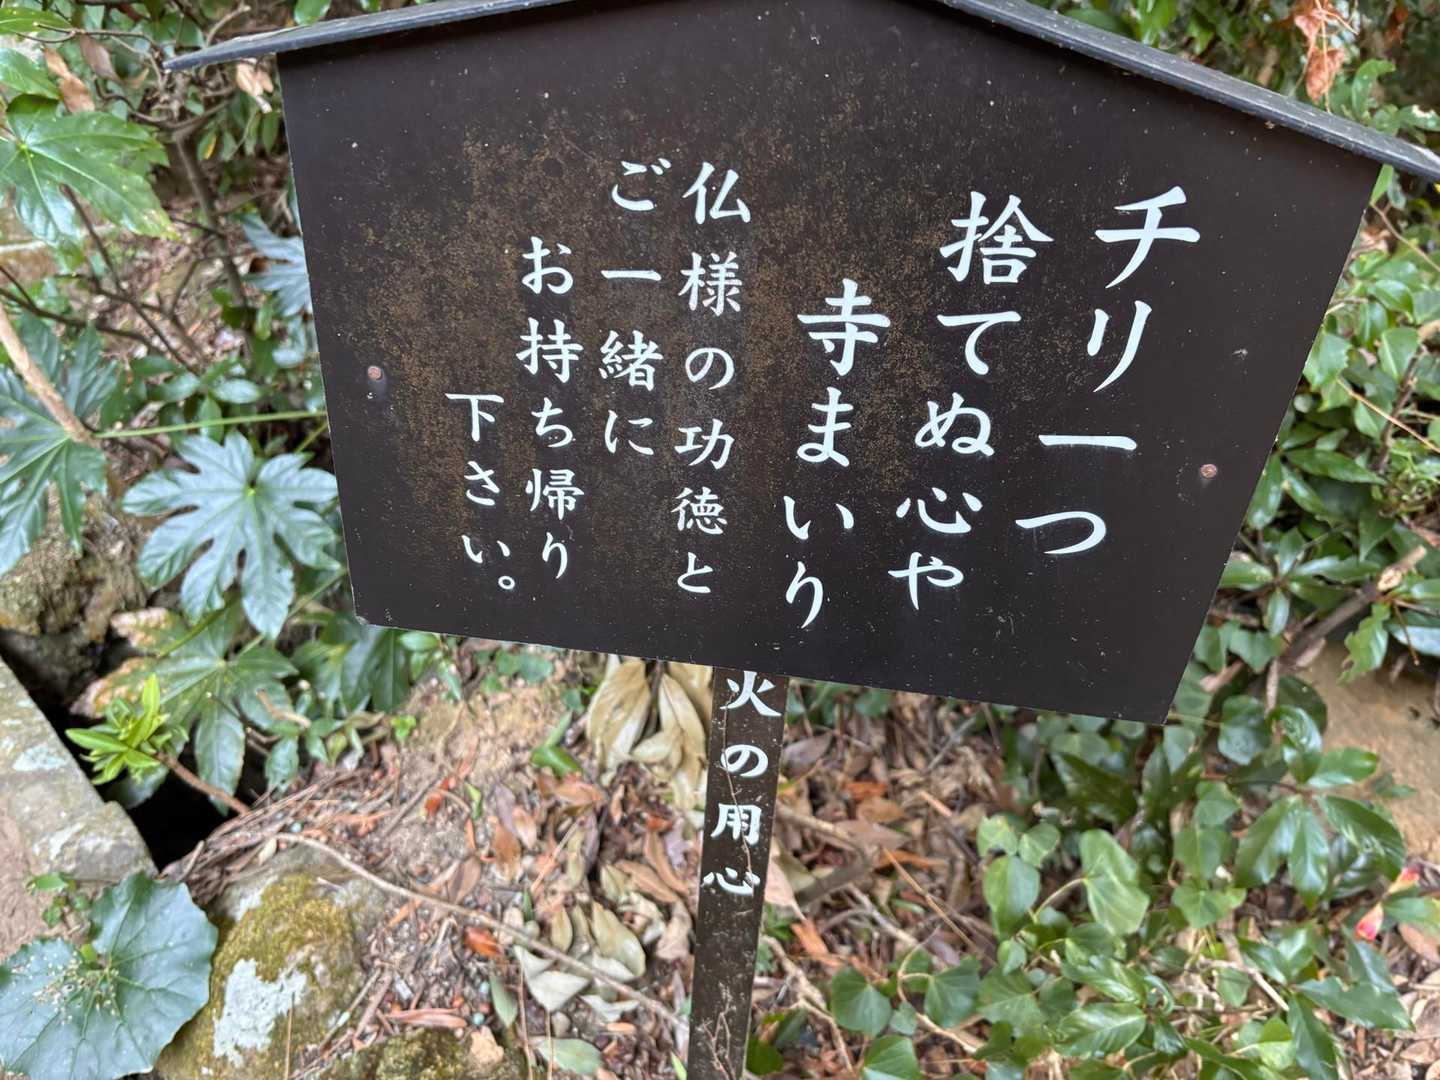 チリ一つ
捨てぬ心や
寺まいり
仏様の功徳と
ご一緒に
お持ち帰り
下さい。
火の用心